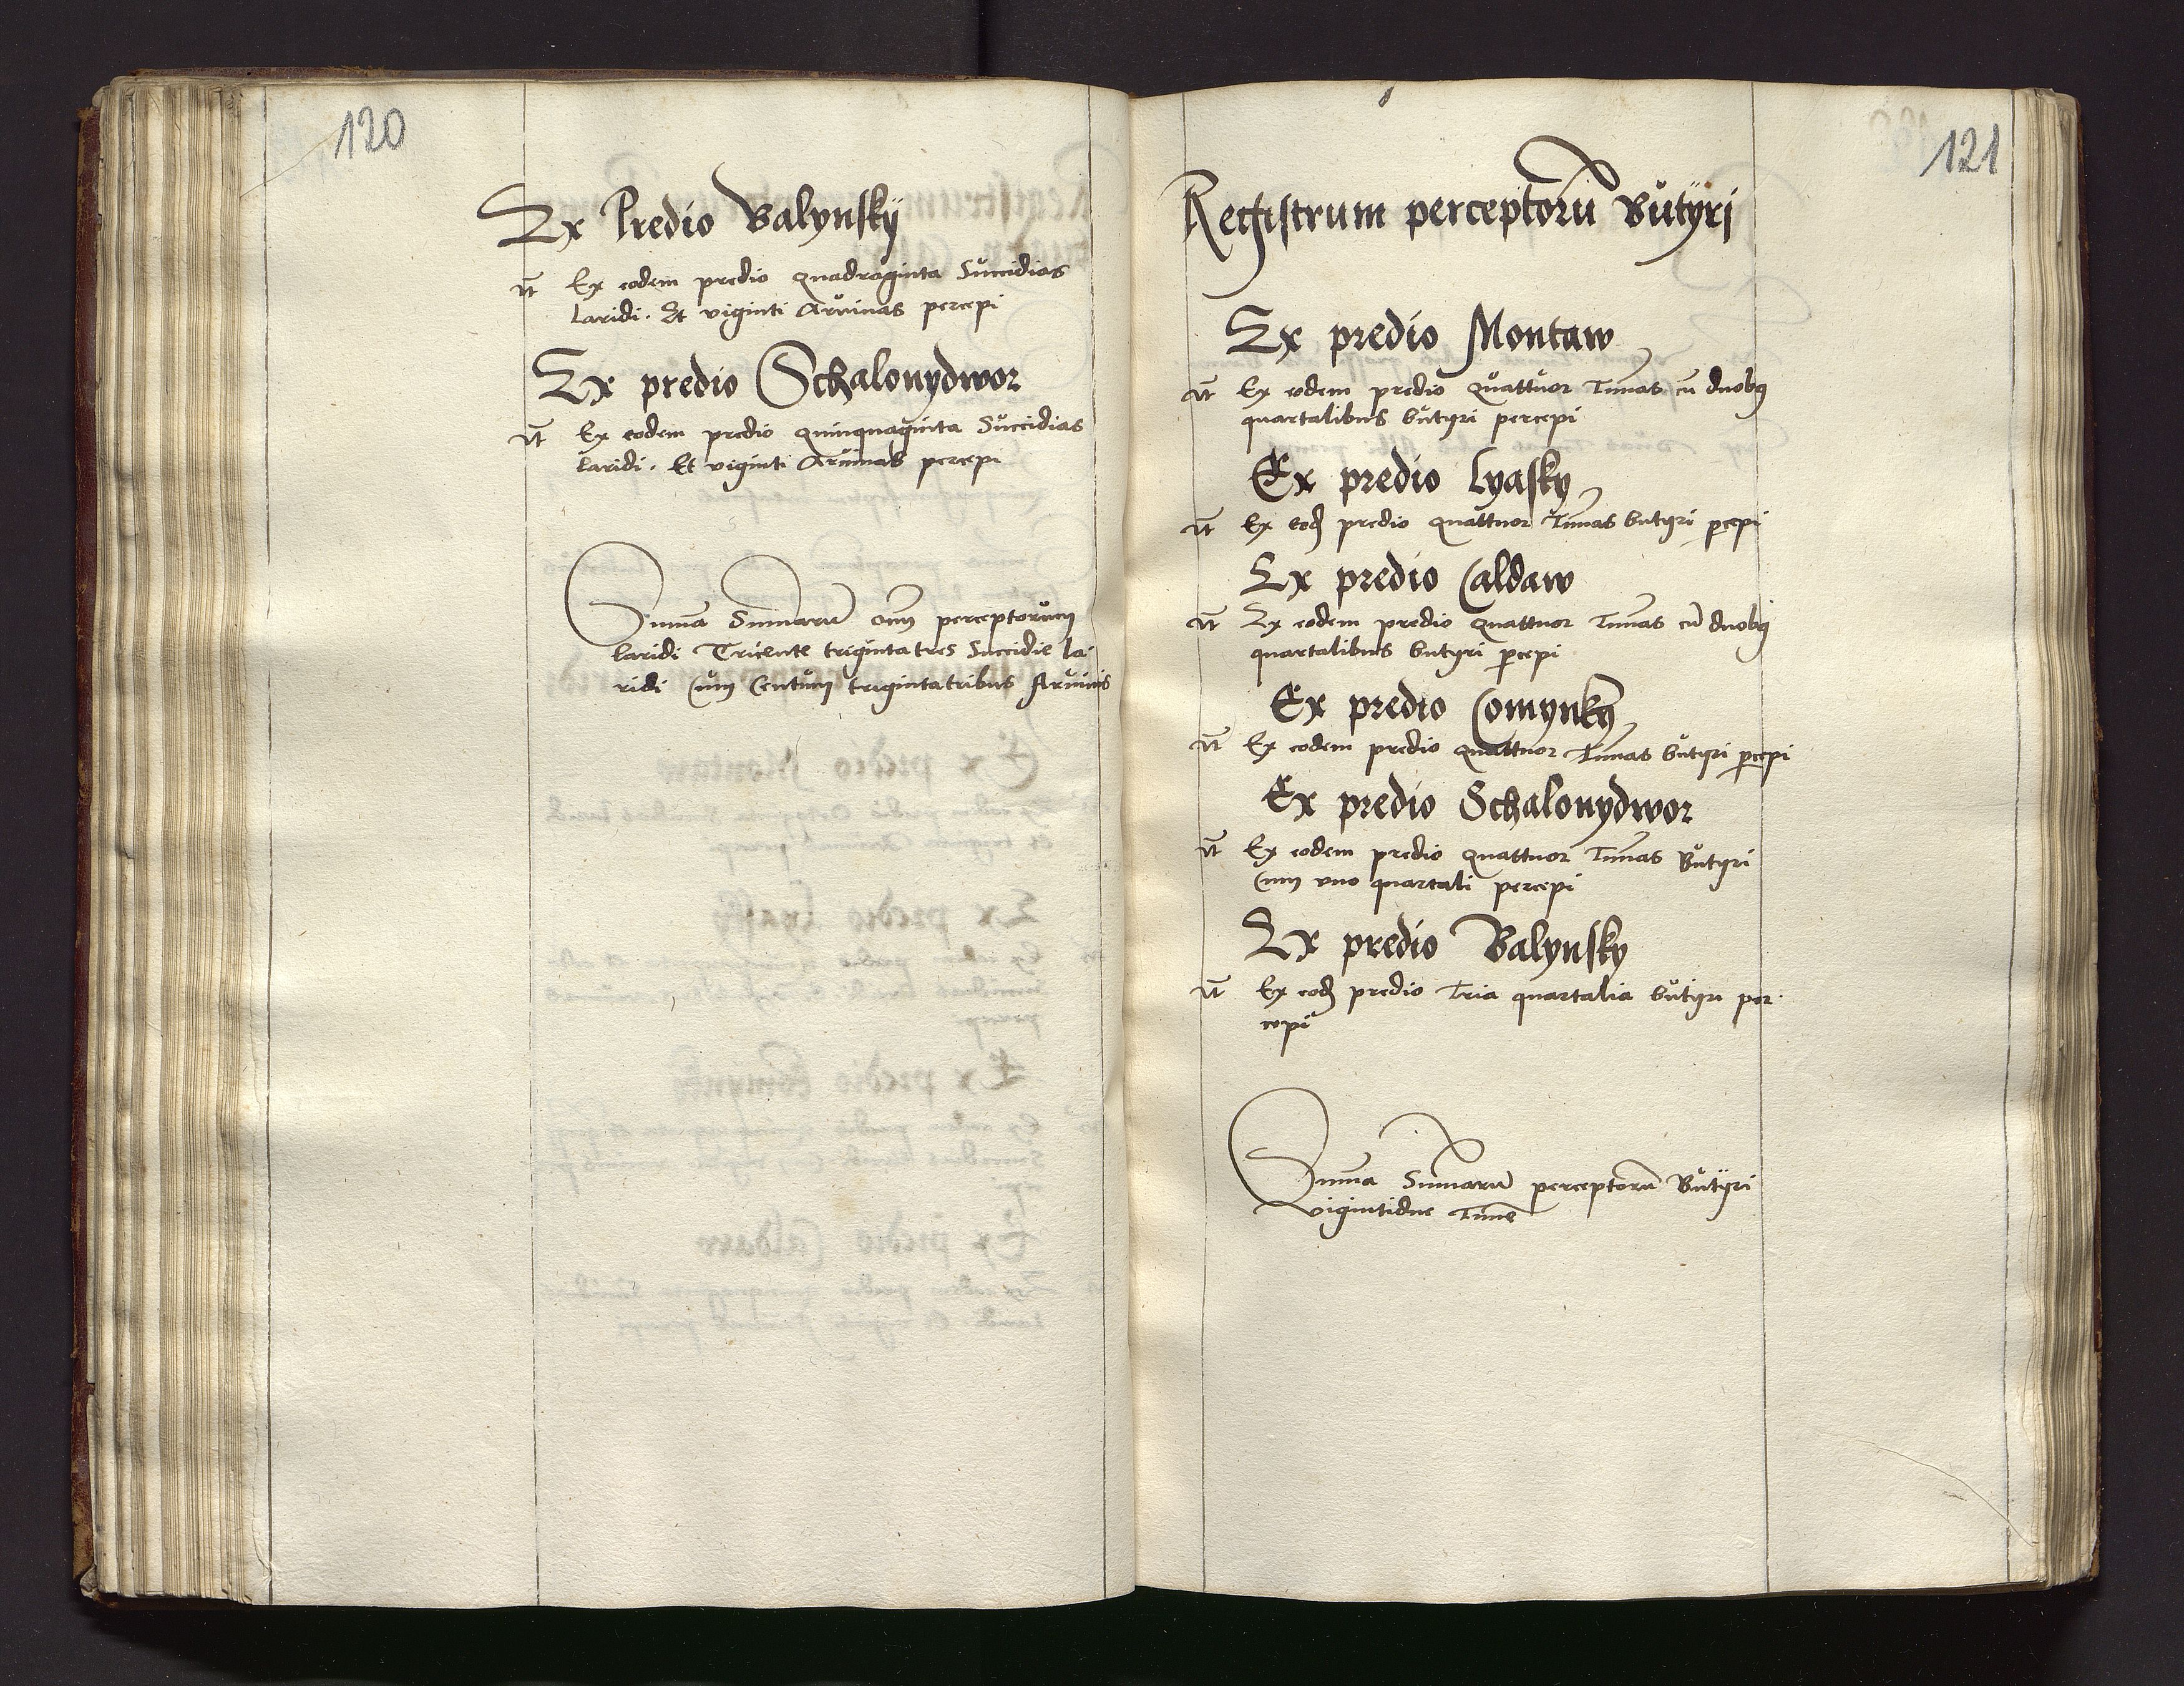 120
Ex Predio Balynskÿ
It Ex eodem predio quadraginta Succidias
laridi. Et viginti Arvinas percepi
Ex predio Schalonydwor
It Ex eodem predio quinquaginta Succidias
laridi. Et viginti Arvinas percepi
Suma Sumarũ oim perceptorum
laridi Tricente trigintatres Succidie la-
ridi Cum Centum trigintatribus Arvinis
121
Registrum perceptorũ Butÿri
Ex predio Montaw
It Ex eodem predio quattuor Tunas cũ duobꝫ
quartalibus butyri percepi
Ex predio Lyasky
It Ex eodẽ predio quattuor Tunas butyri ꝑcepi
Ex predio Caldaw
It Ex eodem predio quattuor Tunas cũ duobꝫ
quartalibus butyri ꝑcepi
Ex predio Comynky
It Ex eodem predio quattuor Tunas butyri ꝑcepi
Ex predio Schalonydwor
It Ex eodem predio quattuor Tunas Butyri
Cum vno quartali percepi
Ex predio Balynsky
It Ex eodẽ predio Tria quartalia butyri per-
cepi
Suma Sumarũ perceptorũ Butÿri
vigintidue Tune